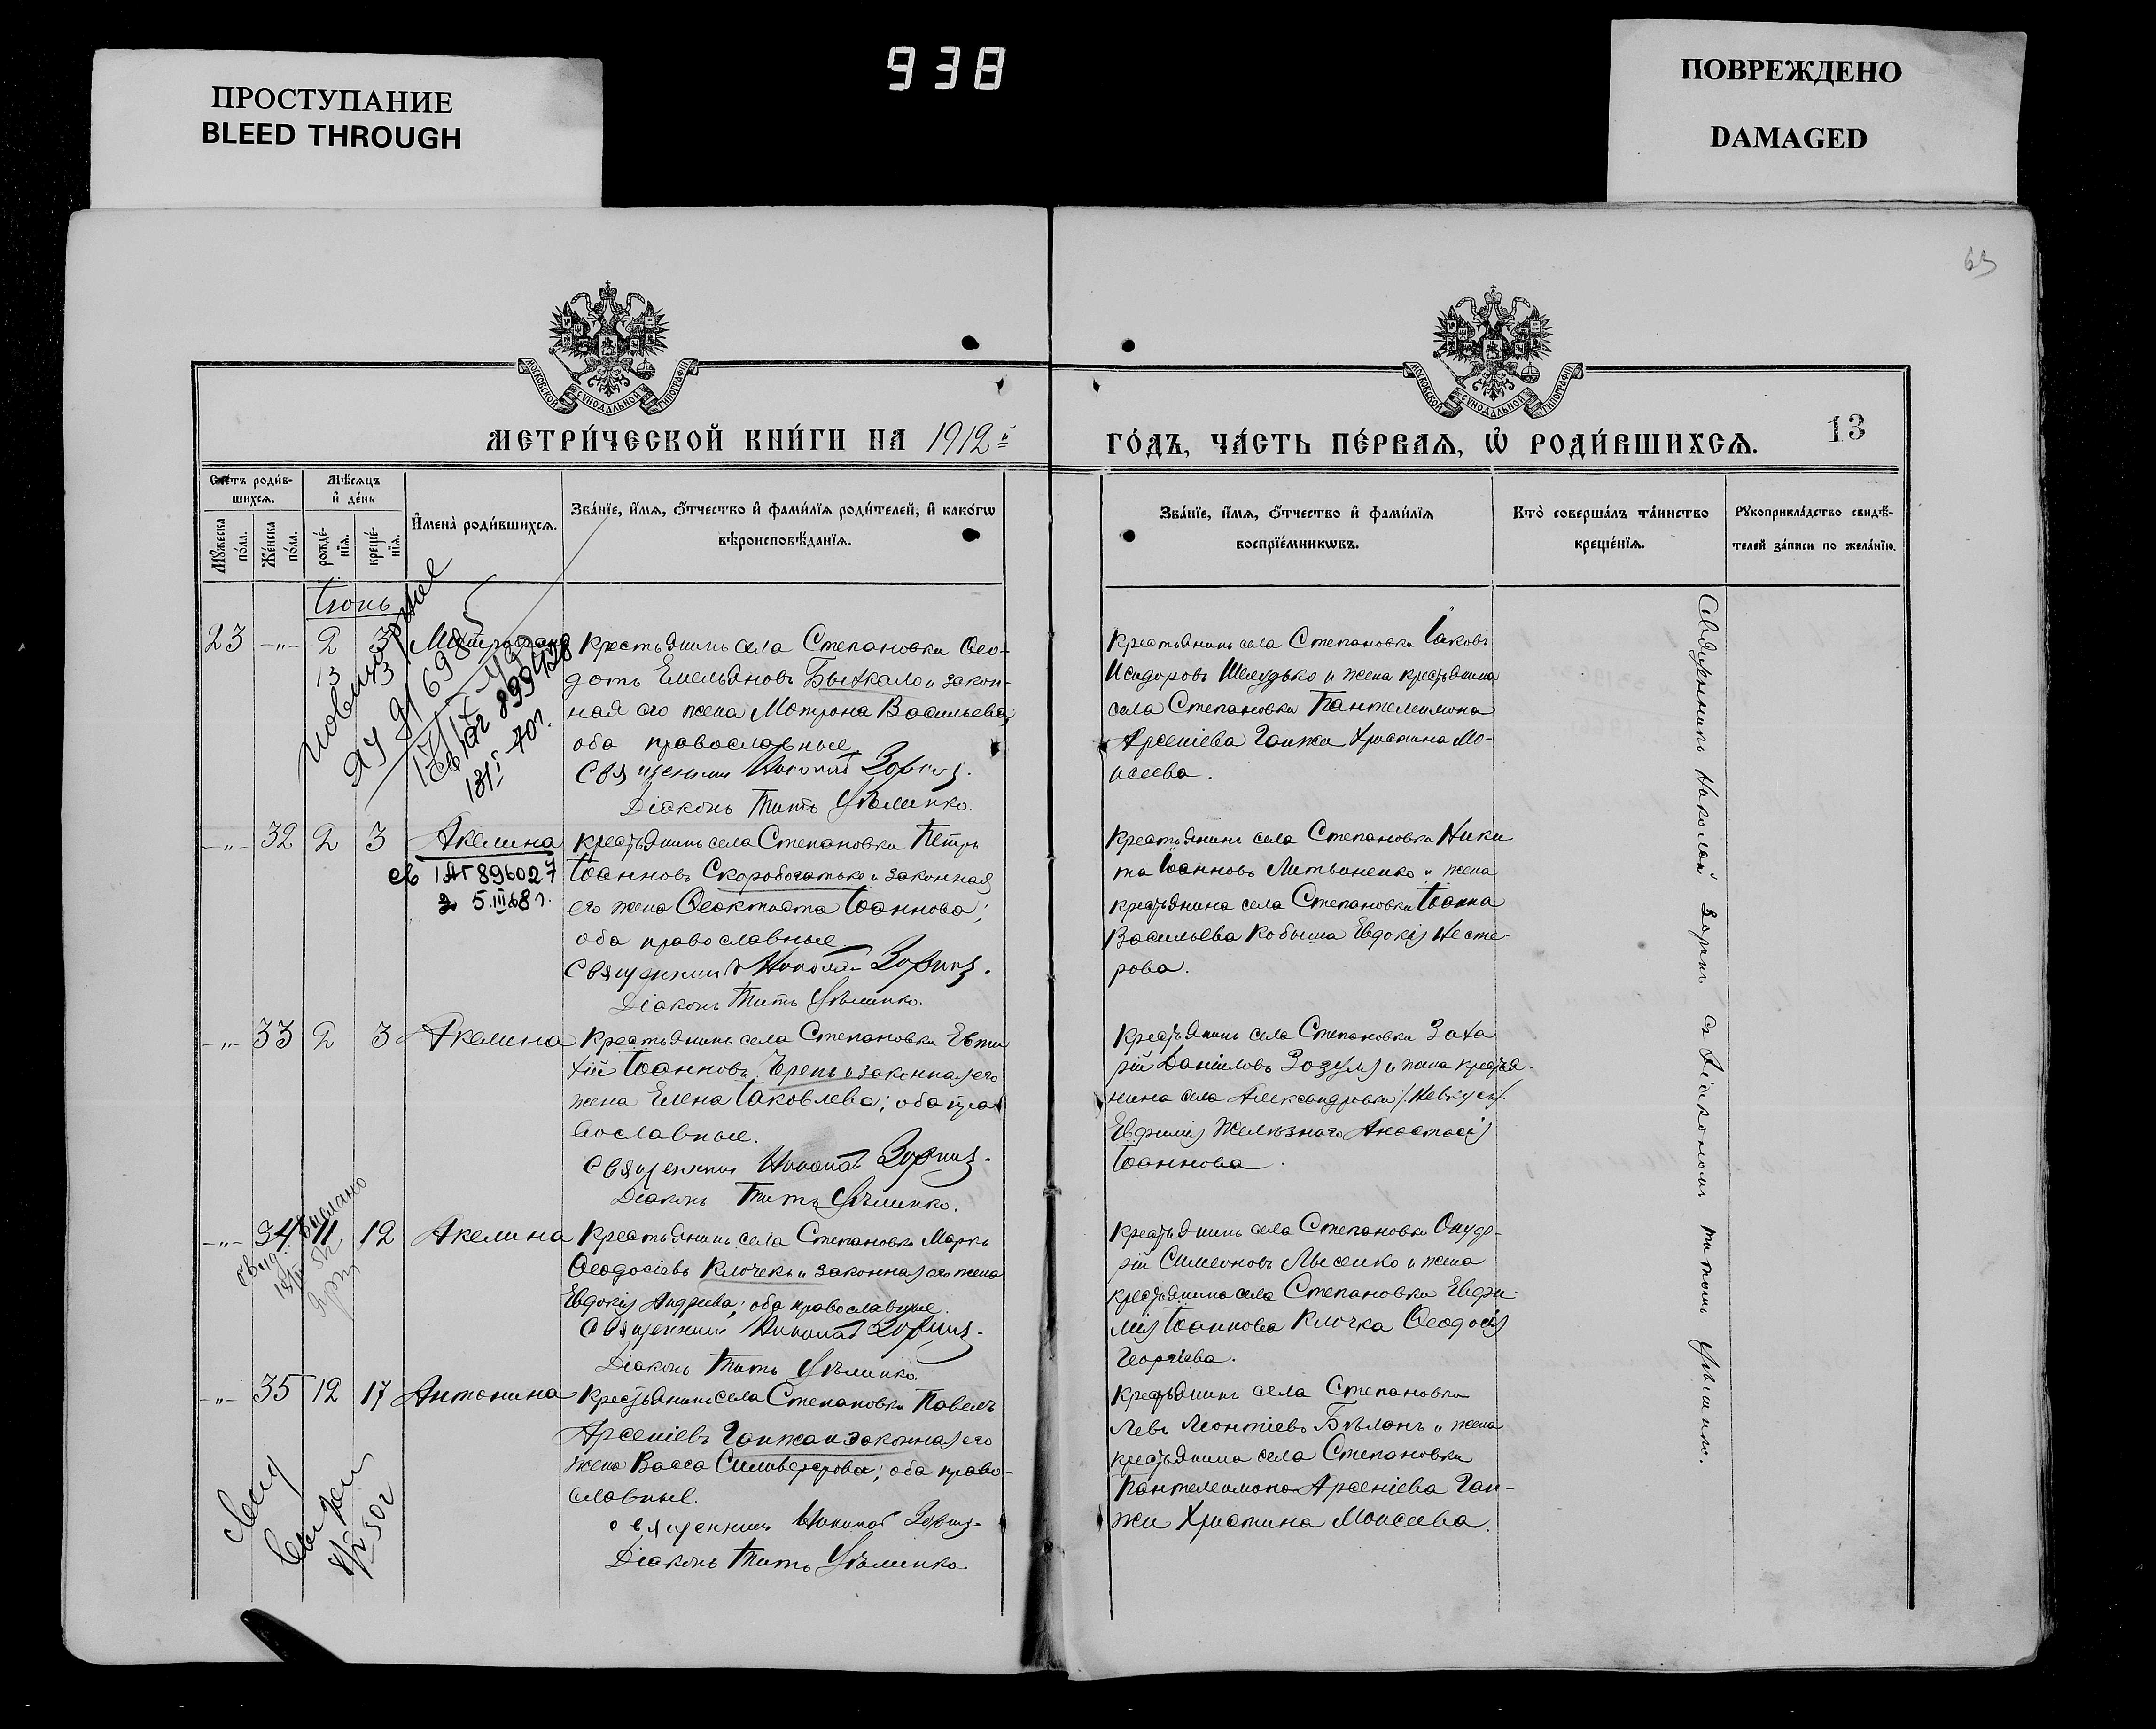 ПРОСТУПАНИЕ
BLEED THROUGH
938
ПОВРЕЖДЕНО
DAMAGED
63
МОСКОВСКОЙ СѴНОДАЛЬНОЙ ТИПОГРАФІИ
МОСКОВСКОЙ СѴНОДАЛЬНОЙ ТИПОГРАФІИ
МЕТРИ́ЧЕСКОЙ КНИ́ГИ НА 1912й
ГО́ДЪ, ЧА́СТЬ ПЕ́РВАѦ, Ѽ РОДИ́ВШИХСѦ.
13
Счетъ роди́в-
шихсѧ.
Мѣ́сѧцъ
и҆ де́нь
Мꙋ́жеска
по́ла.
Же́нска
по́ла.
рожде́-
нїѧ.
креще́-
нїѧ.
И҆мена̀ роди́вшихсѧ.
Зва́нїе, и҆́мѧ, ѻ҆́тчество и҆ фами́лїѧ роди́телей, и҆ како́гѡ
вѣроисповѣ́данїѧ.
Зва́нїе, и҆́мѧ, ѻ҆́тчество и҆ фами́лїѧ
воспрїе́мникѡвъ.
Кто̀ соверша́лъ та́инство
креще́нїѧ.
Рꙋкоприкла́дство свидѣ́-
телей за́писи по жела́нїю.
Іюнь
23 -"- 2 3 Митрофанъ
13
Крестьянинъ села Степановки Ѳео-
дотъ Емельяновъ Быхкало и закон-
ная его жена Мотрона Васильева
оба православные.
Священникъ Николай Зоринъ.
Діаконъ Титъ
повторное
899428
131 70г.
Крестьянинъ села Степановки Іаковъ
Исидоровъ Шелудько и жена крестьянина
села Степановки Пантелеимона
Арсеніева Ганжи Христина Мо-
исеева.
-"- 32 2 3 Акелина
св I АГ 896027
5.III 68 г.
Крестьянинъ села Степановки Петръ
Іоанновъ Скоробогатько и законная
его жена Ѳеоктиста Іоаннова;
оба православные.
Священникъ Николай Зоринъ.
Діаконъ Титъ
Крестьянинъ села Степановки Ники
та Іоанновъ Литвиненко и жена
крестьянина села Степановки Іоанна
Васильева Кобыша Евдокія Несте-
рова.
-"- 33 2 3 Акелина
Крестьянинъ села Степановки Евти
хій Іоанновъ Черепъ и законная его
жена Елена Іаковлева; оба пра
вославные.
Священникъ Николай Зоринъ.
Діаконъ Титъ
Крестьянинъ села Степановки Заха
рій Даніиловъ Зозуля и жена крестья-
нина села Александровки
Евфимія Желѣзнаго Анастасія
Іоаннова.
-"- 34 11 12 Акелина
Крестьянинъ села Степановки Маркъ
Ѳеодосіевъ Клочекъ и законная его жена
Евдокія Андреева; оба православные.
Священникъ Николай Зоринъ.
Діаконъ Титъ
Крестьянинъ села Степановки Онуф-
рій Симеоновъ Лысенко и жена
крестьянина села Степановки Евфи-
мія Іоаннова Клочка Ѳеодосія
Георгіева.
-"- 35 12 17 Антонина
Крестьянинъ села Степановки Павелъ
Арсеніевъ Ганжа и законная его
жена Васса Сильвестрова; оба право-
славные.
Священникъ Николай Зоринъ
Діаконъ Титъ
Крестьянинъ села Степановки
Левъ Леонтіевъ Бѣланъ и жена
крестьянина села Степановки
Пантелеимона Арсеніева Ган-
жи Христина Моисеева.
Священникъ Николай Зоринъ съ Діакономъ Титомъ